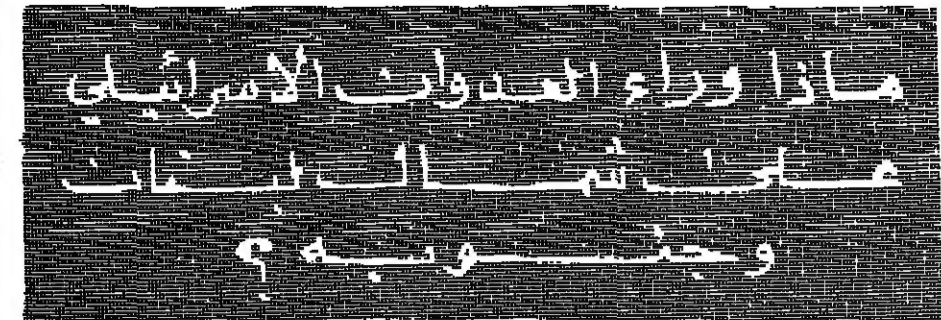 ماذا وراء العدوان الاسرائيلي
على شمال لبنان
وجنوبه ؟